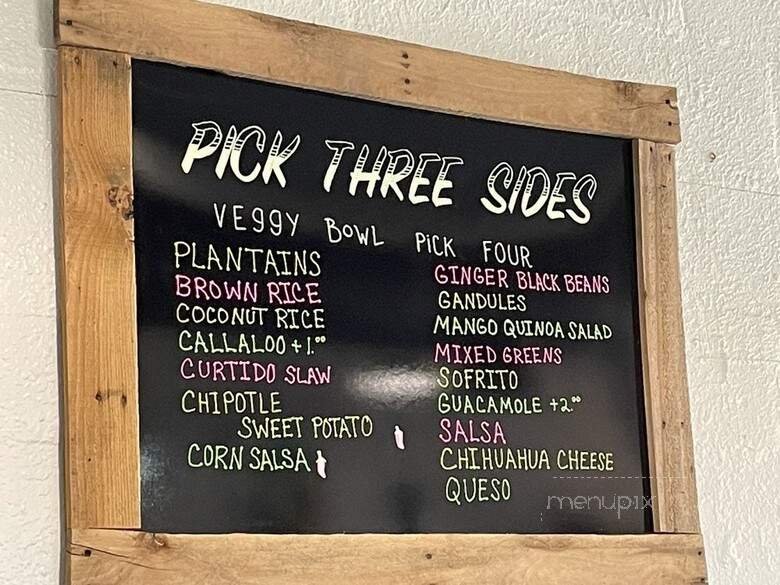 PICK THREE SIDES
VEGGY BOWL PICK FOUR
PLANTAINS
BROWN RICE
COCONUT RICE
CALLALOO + 1.00
CURTIDO SLAW
CHIPOTLE
SWEET POTATO
CORN SALSA
GINGER BLACK BEANS
GANDULES
MANGO QUINOA SALAD
MIXED GREENS
SOFRITO
GUACAMOLE +2.00
SALSA
CHIHUAHUA CHEESE
QUESO
menupix